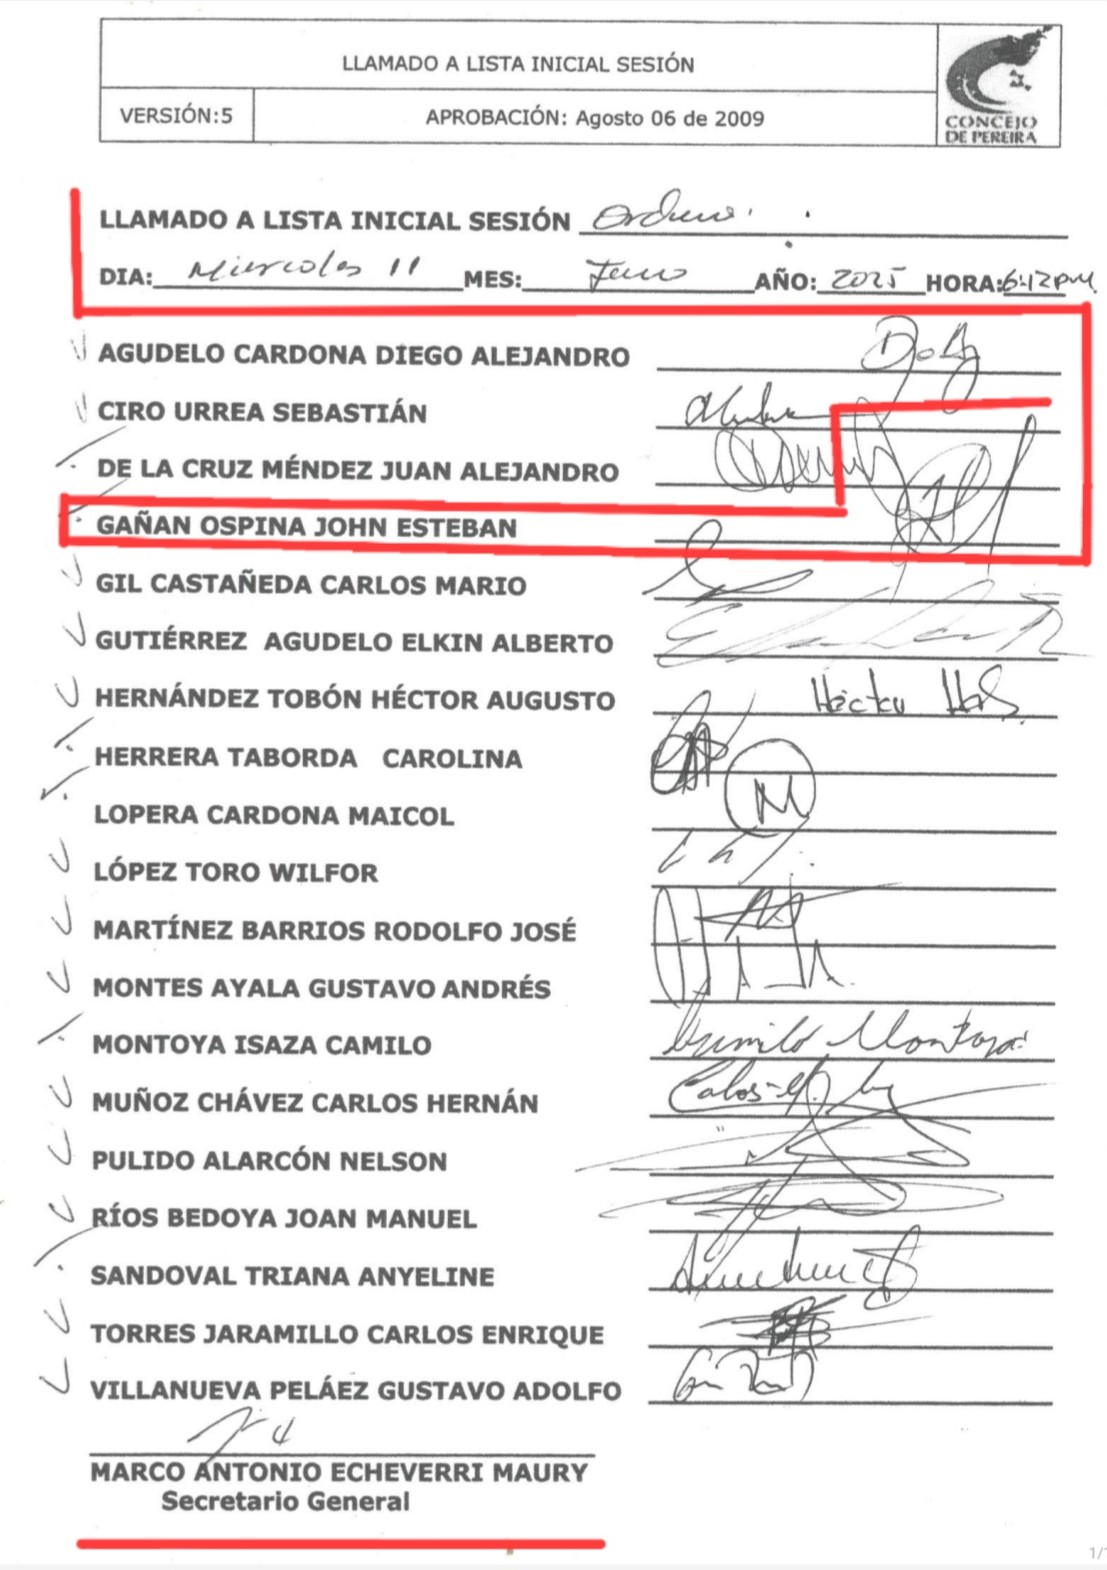 LLAMADO A LISTA INICIAL SESIÓN
VERSIÓN:5
APROBACIÓN: Agosto 06 de 2009
CONCEJO
DE PEREIRA
LLAMADO A LISTA INICIAL SESIÓN
DIA: Miercoles 11 MES: AÑO: 2025 HORA: 6:42 PM
AGUDELO CARDONA DIEGO ALEJANDRO
CIRO URREA SEBASTIÁN
DE LA CRUZ MÉNDEZ JUAN ALEJANDRO
GAÑAN OSPINA JOHN ESTEBAN
GIL CASTAÑEDA CARLOS MARIO
GUTIÉRREZ AGUDELO ELKIN ALBERTO
HERNÁNDEZ TOBÓN HÉCTOR AUGUSTO Héctor
HERRERA TABORDA CAROLINA
LOPERA CARDONA MAICOL M
LÓPEZ TORO WILFOR
MARTÍNEZ BARRIOS RODOLFO JOSÉ
MONTES AYALA GUSTAVO ANDRÉS
MONTOYA ISAZA CAMILO Camilo Montoya
MUÑOZ CHÁVEZ CARLOS HERNÁN
PULIDO ALARCÓN NELSON
RÍOS BEDOYA JOAN MANUEL
SANDOVAL TRIANA ANYELINE
TORRES JARAMILLO CARLOS ENRIQUE
VILLANUEVA PELÁEZ GUSTAVO ADOLFO
MARCO ANTONIO ECHEVERRI MAURY
Secretario General